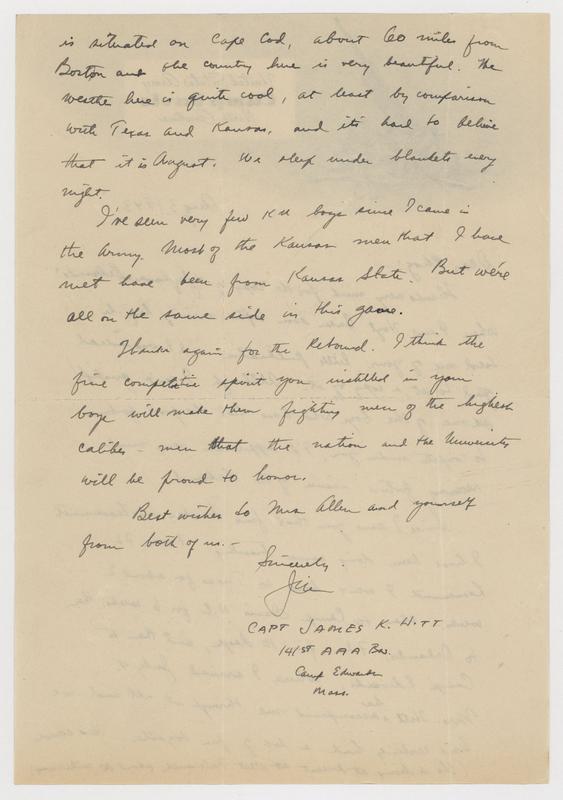 is situated on Cape Cod, about 60 miles from
Boston and the country here is very beautiful. The
weather here is quite cool, at least by comparison
with Texas and Kansas, and it's hard to believe
that it is August. We sleep under blankets every
night.
I've seen very few KU boys since I came in
the Army. Most of the Kansas men that I have
met have been from Kansas State. But we're
all on the same side in this game.
Thanks again for the Rebound. I think the
fine competitive spirit you instilled in your
boys will make them fighting men of the highest
caliber - men that the nation and the University
will be proud to honor.
Best wishes to Mrs Allen and yourself
from both of us. -
Sincerely,
Jim
CAPT JAMES K. HITT
141st AAA Bn.
Camp Edwards
Mass.